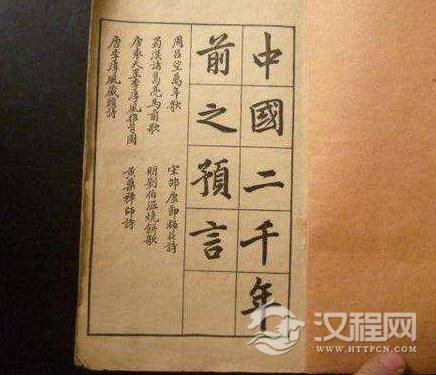 中國二千年
前之預言
周呂望萬年歌
蜀漢諸葛亮馬前歌
唐袁天罡李淳風推背圖
唐李淳風藏頭詩
宋邵康節梅花詩
明劉伯溫燒餅歌
黃蘗禪師詩
汉程网
WWW.HTTPCN.COM